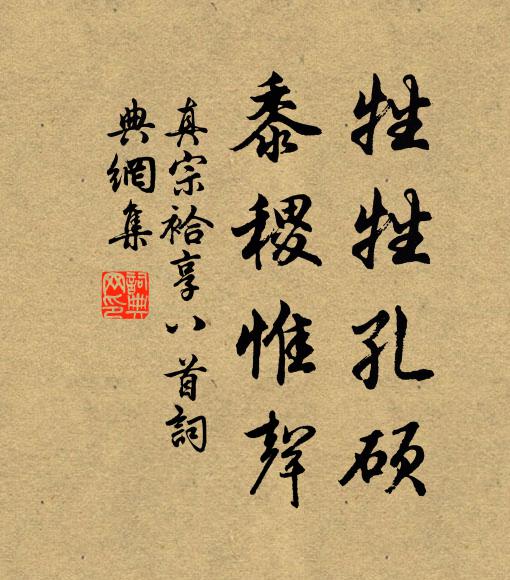 牲牲孔硕
黍稷惟声
真宗祫享八首詞
典網集
詞典网印